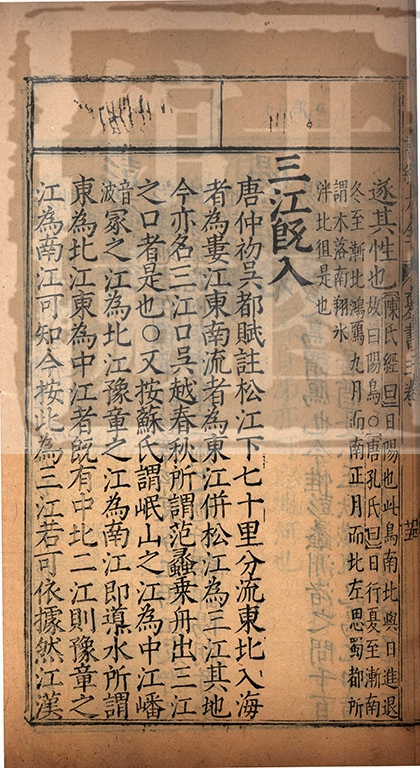 遂其性也陳氏經曰日陽也此鳥南北與日進退
故曰陽鳥○唐孔氏曰日行夏至漸南
冬至漸北鴻鴈九月而南正月而北左思蜀都所
謂木落南翔氷
泮北徂是也
三江旣入
唐仲初吳都賦註松江下七十里分流東北入海
者為婁江東南流者為東江併松江為三江其地
今亦名三江口吳越春秋所謂范蠡乗舟出三江
之口者是也○又按蘇氏謂岷山之江為中江嶓
冢之江為北江豫章之江為南江即導水所謂
音波
東為北江東為中江者旣有中北二江則豫章之
江為南江可知今按此為三江若可依據然江漢